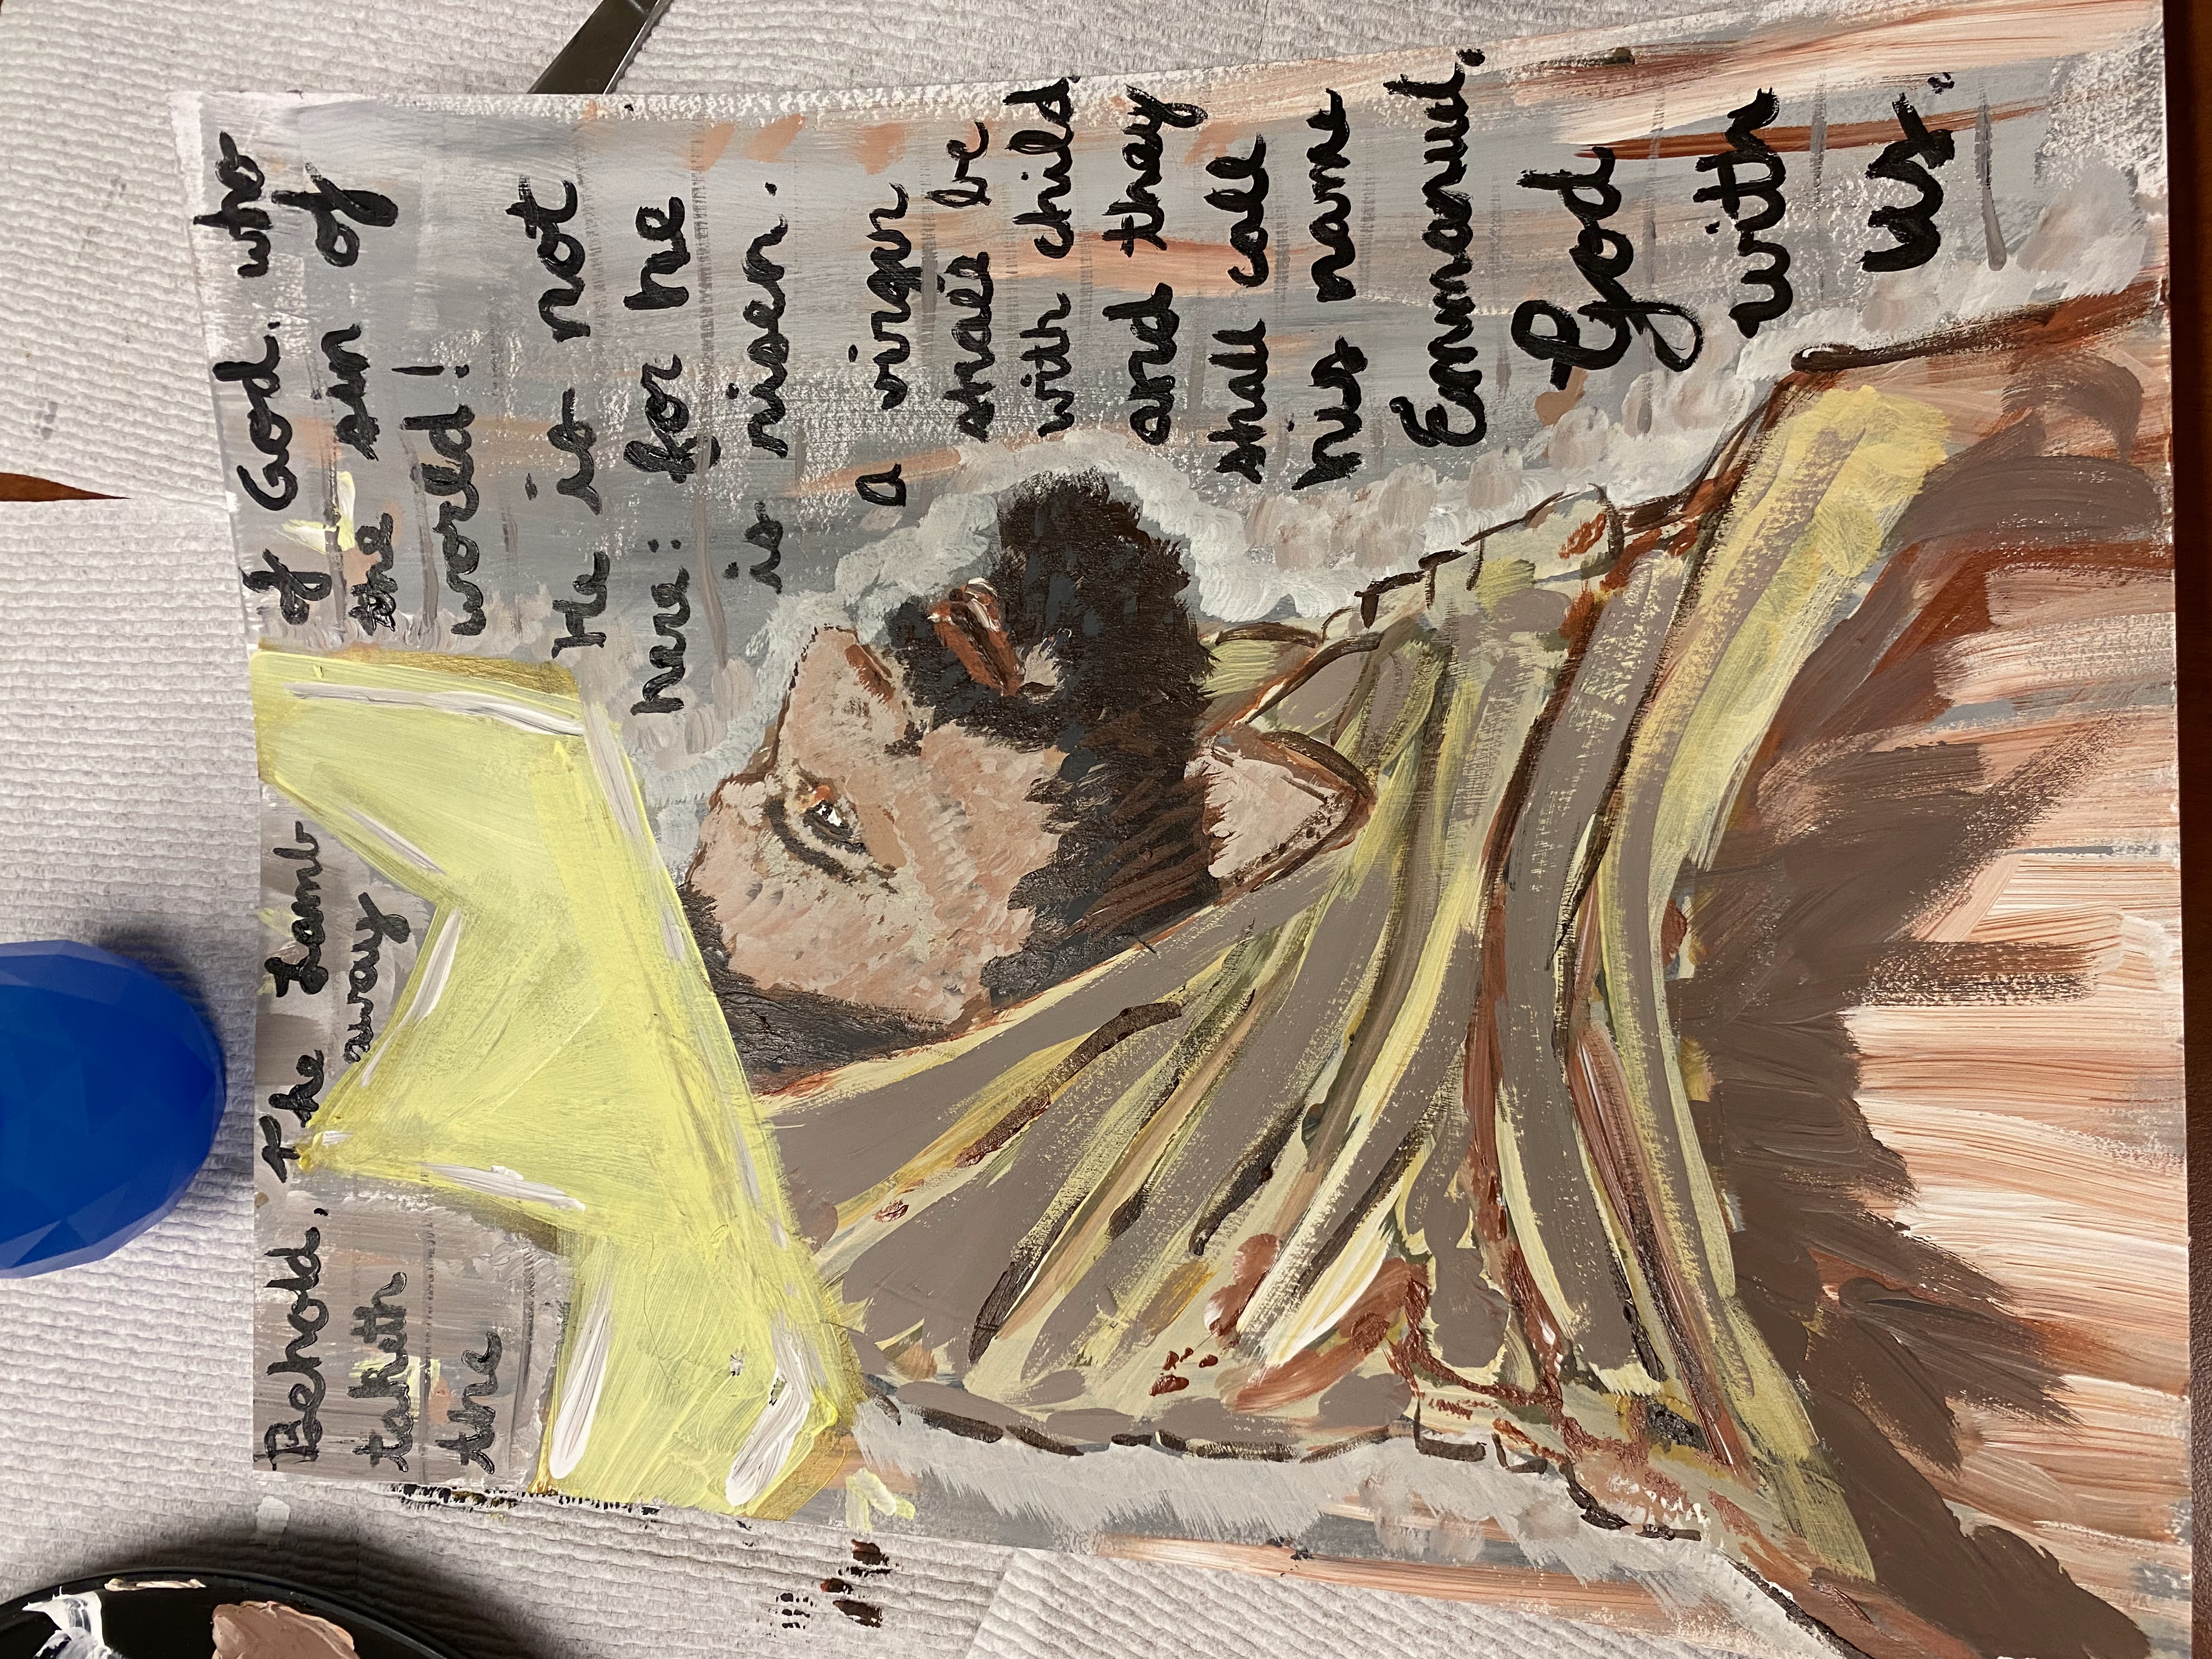 Behold, The Lamb of God, who
taketh away the sin of
the world!
He is not
here: for he
is risen.
a virgin
shall be
with child,
and they
shall call
his name
Emmanuel,
God
with
us.